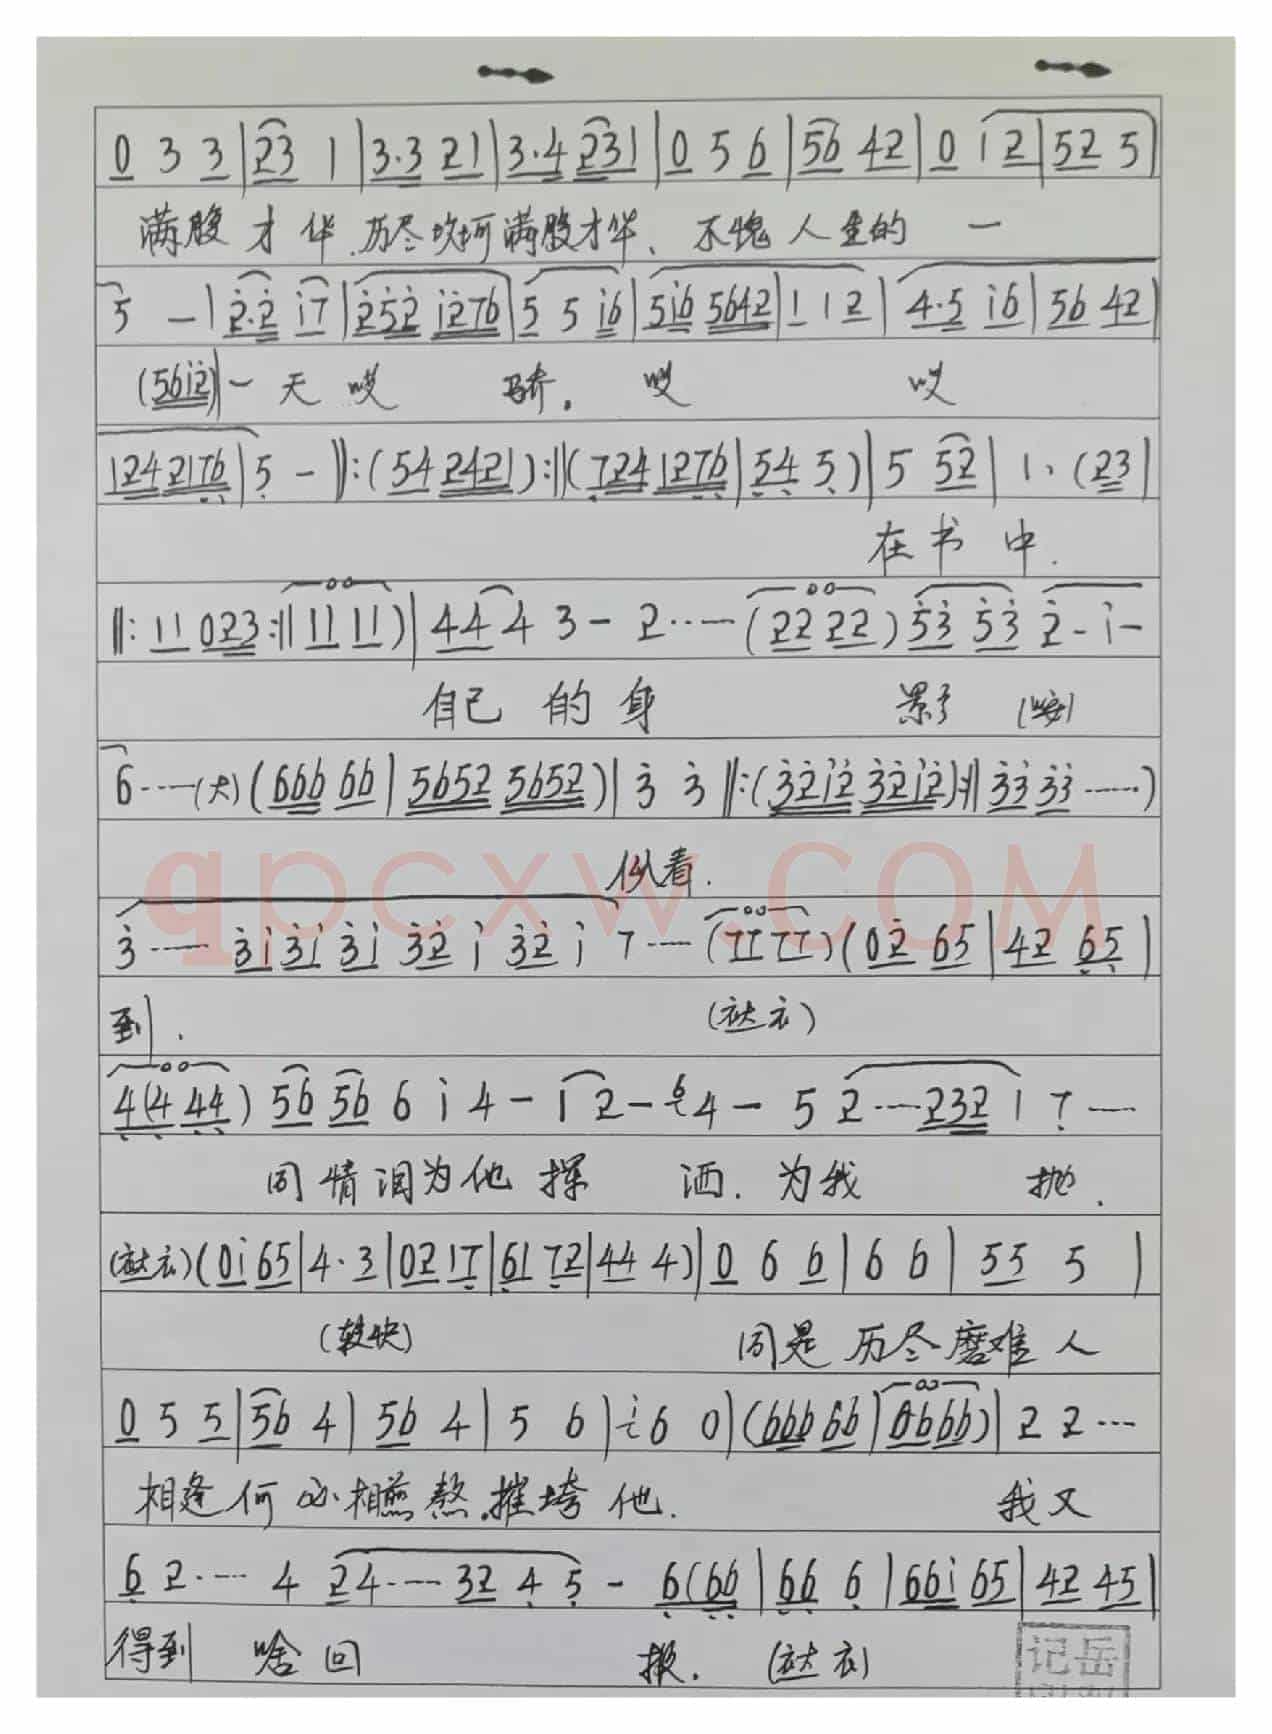 0 3 3 | 23 1 | 3·3 21 | 3·4 231 | 0 5 6 | 56 42 | 0 i 2 | 52 5 |
满腹才华.历尽坎坷满腹才华、不愧人生的一
5 — | 2·2 i7 | 252 i276 | 5 5 i6 | 5i6 5642 | 1 1 2 | 4·5 i6 | 56 42 |
(56i2) 一天哎 骄. 哎 哎
124 2176 | 5 - ‖:(54 2421):‖(724 1276 | 54 5) | 5 52 | 1、(23 |
在书中.
‖: 11 023 :‖ 11 11) | 44 4 3 - 2····— (22 22) 53 53 2 - i -
自己的身影
6····—(大)(666 66 | 5652 5652) | 3 3 ‖:(32i2 32i2):‖ 33 33 ······)
似看.
qpcxw.COM
3 ····— 3i 3i 3i 32 i 32 i 7 ···· (77 77) (02 65 | 42 65 |
到. (衣)
4(4 44) 56 56 6 i 4 - i 2 - 6 4 - 5 2 ···· 232 1 7 ——
同情泪为他 洒.为我 抛.
(衣)(0i 65 | 4·3 | 02 17 | 61 72 | 44 4) | 0 6 6 | 6 6 | 55 5 |
(较快) 同是历尽磨难人
0 5 5 | 56 4 | 56 4 | 5 6 | i 6 0 | (666 66 | 66 66) | 2 2 ···
相逢何必相煎熬.摧垮他. 我又
6 2····— 4 24····— 32 4 5 - 6(66 | 66 6 | 66i 65 | 42 45 |
得到啥回报. (衣)
记岳